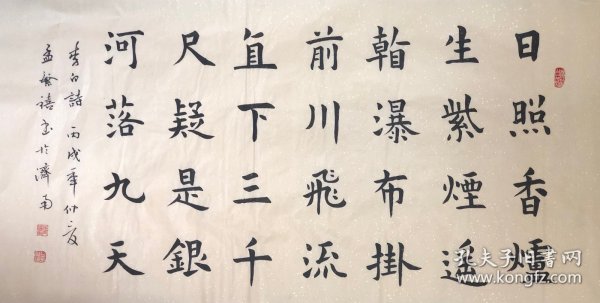 日照香爐
生紫煙遥
瀑布掛
前川飛流
直下三千
尺疑是銀
河落九天
李白詩 丙戌年仲夏
孟繁禧書於濟南
孔夫子旧书网